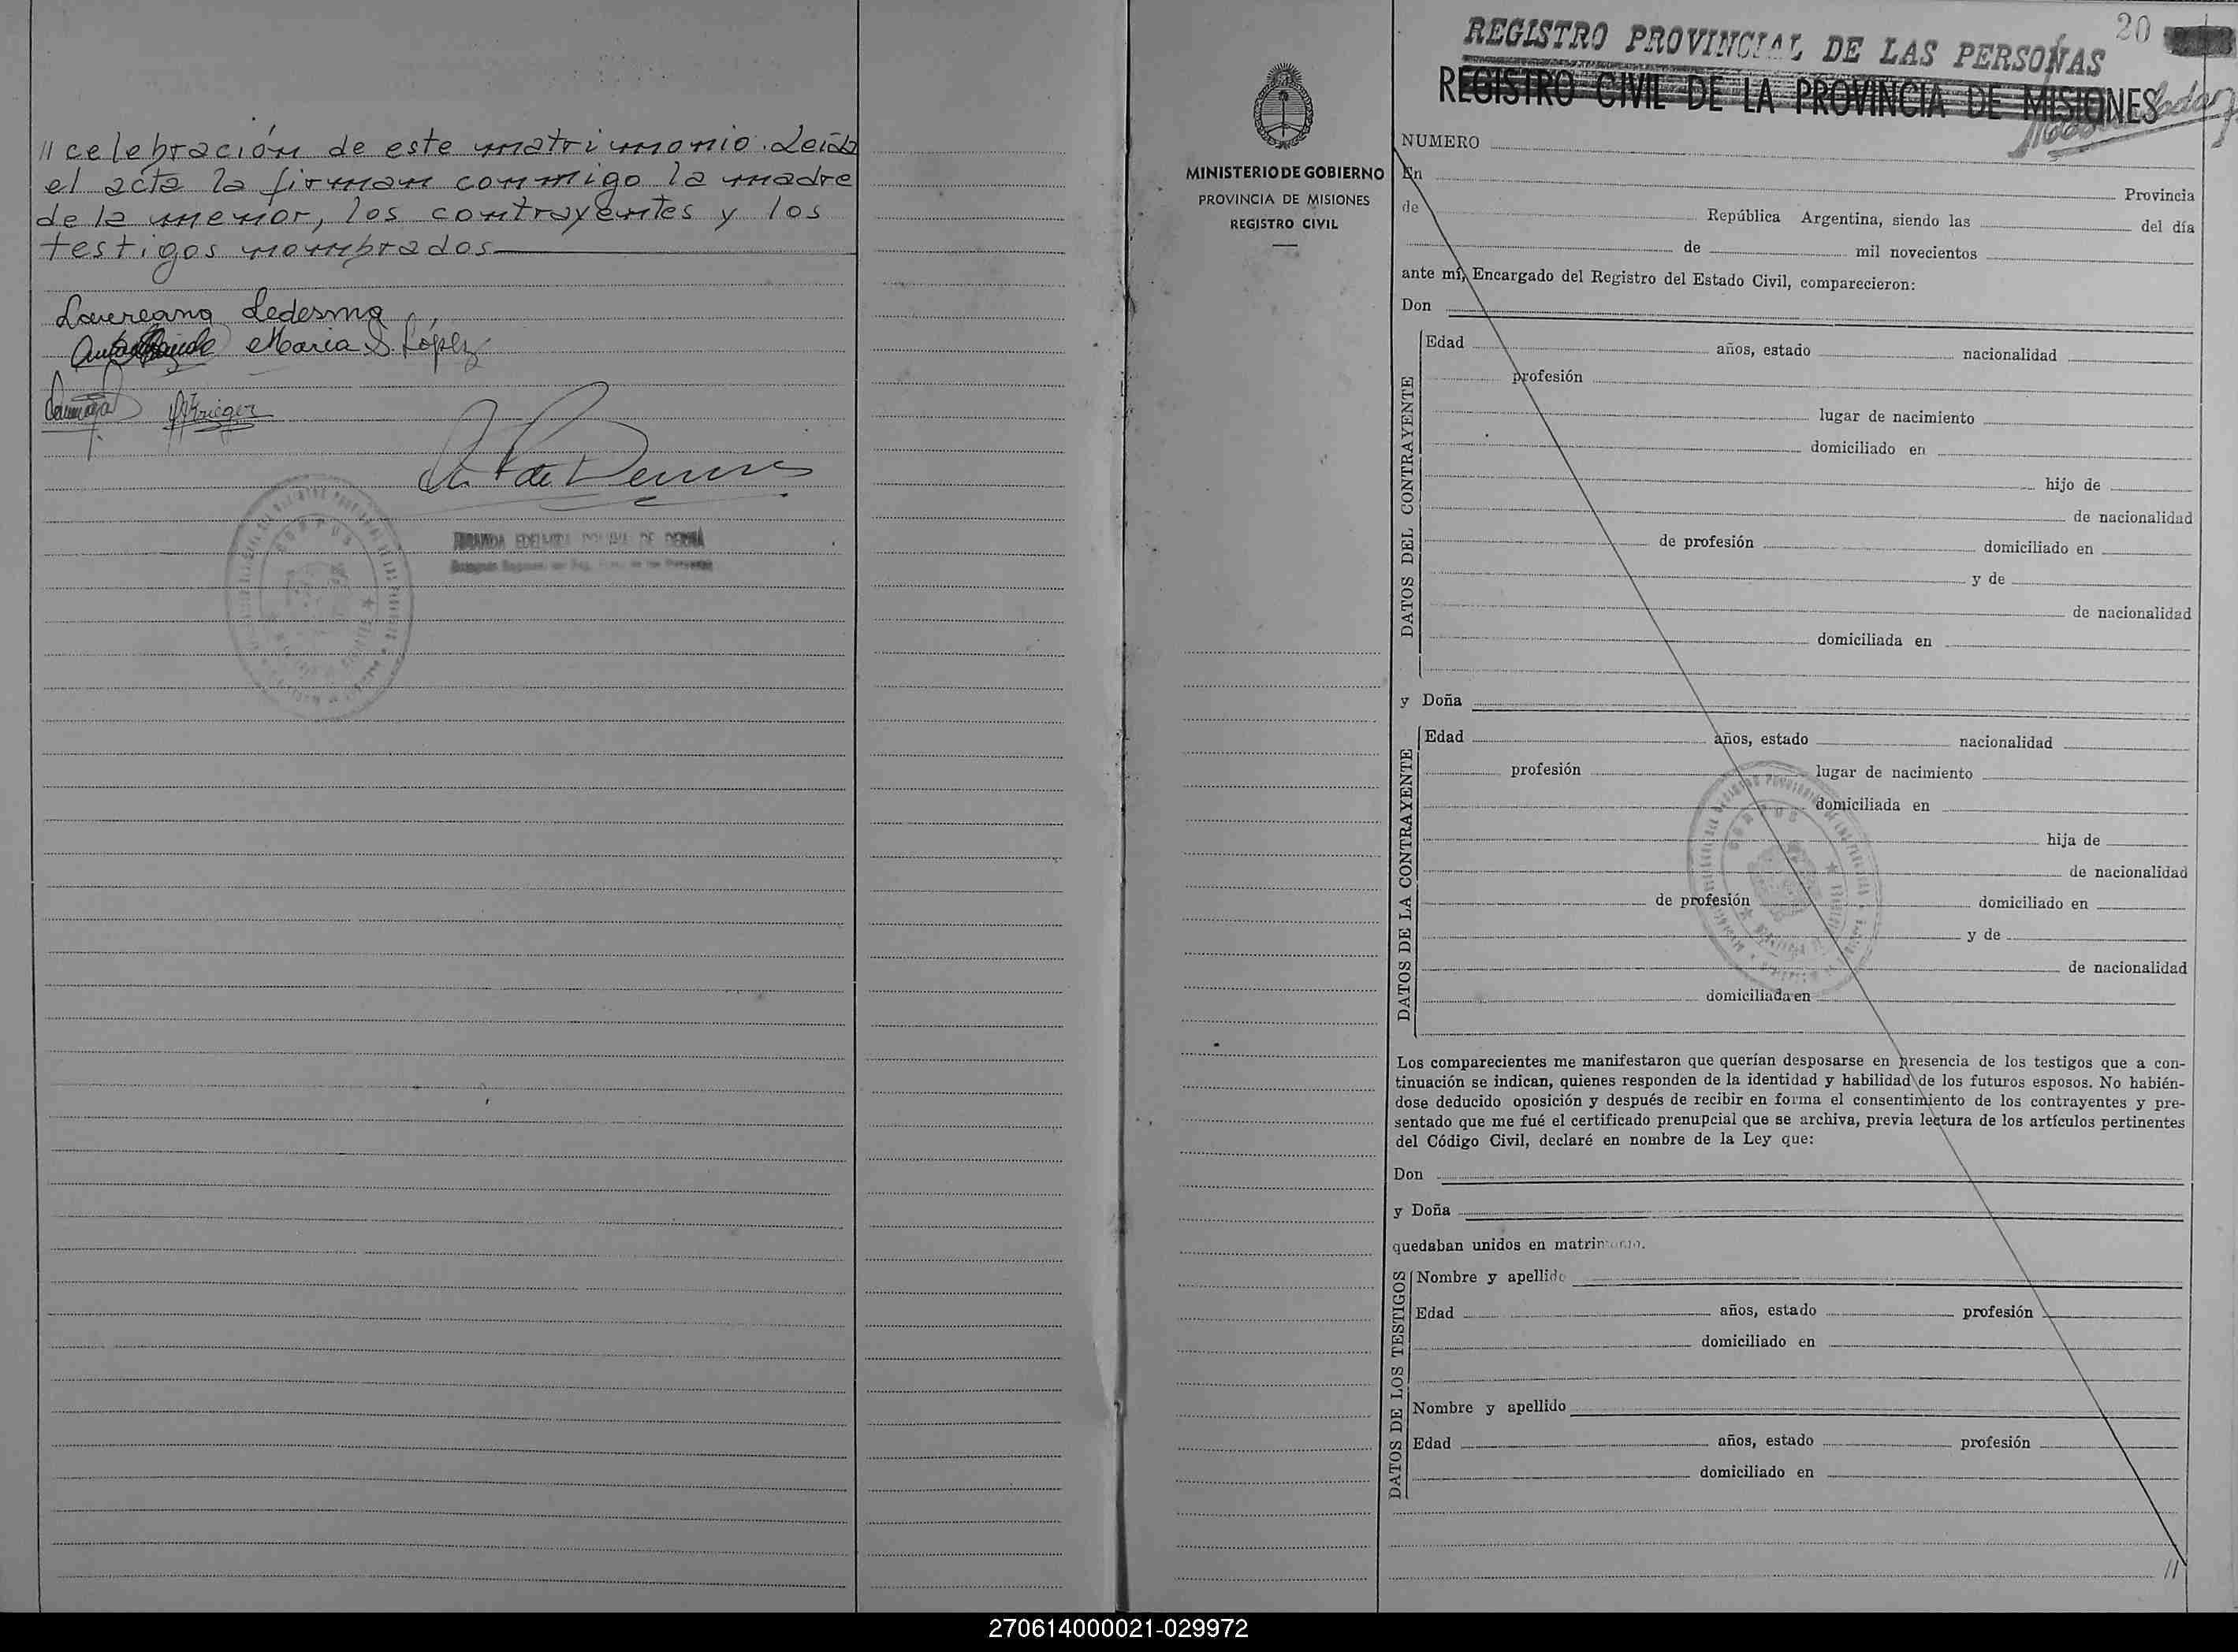 // celebración de este matrimonio. Leída
el acta la firman conmigo la madre
de la menor, los contrayentes y los
testigos nombrados
Laureano Ledesma
Maria S. López
Krieger
CORPUS
MINISTERIO DE GOBIERNO
PROVINCIA DE MISIONES
REGISTRO CIVIL
20
REGISTRO PROVINCIAL DE LAS PERSONAS
REGISTRO CIVIL DE LA PROVINCIA DE MISIONES
NUMERO
En
Provincia
de República Argentina, siendo las del día
de mil novecientos
ante mí, Encargado del Registro del Estado Civil, comparecieron:
Don
DATOS DEL CONTRAYENTE
Edad años, estado nacionalidad
profesión
lugar de nacimiento
domiciliado en
hijo de
de nacionalidad
de profesión domiciliado en
y de
de nacionalidad
domiciliada en
y Doña
DATOS DE LA CONTRAYENTE
Edad años, estado nacionalidad
profesión lugar de nacimiento
domiciliada en
hija de
de nacionalidad
de profesión domiciliado en
y de
de nacionalidad
domiciliada en
CORPUS
Los comparecientes me manifestaron que querían desposarse en presencia de los testigos que a con-
tinuación se indican, quienes responden de la identidad y habilidad de los futuros esposos. No habién-
dose deducido oposición y después de recibir en forma el consentimiento de los contrayentes y pre-
sentado que me fué el certificado prenupcial que se archiva, previa lectura de los artículos pertinentes
del Código Civil, declaré en nombre de la Ley que:
Don
y Doña
quedaban unidos en matrimonio.
DATOS DE LOS TESTIGOS
Nombre y apellido
Edad años, estado profesión
domiciliado en
Nombre y apellido
Edad años, estado profesión
domiciliado en
//
270614000021-029972